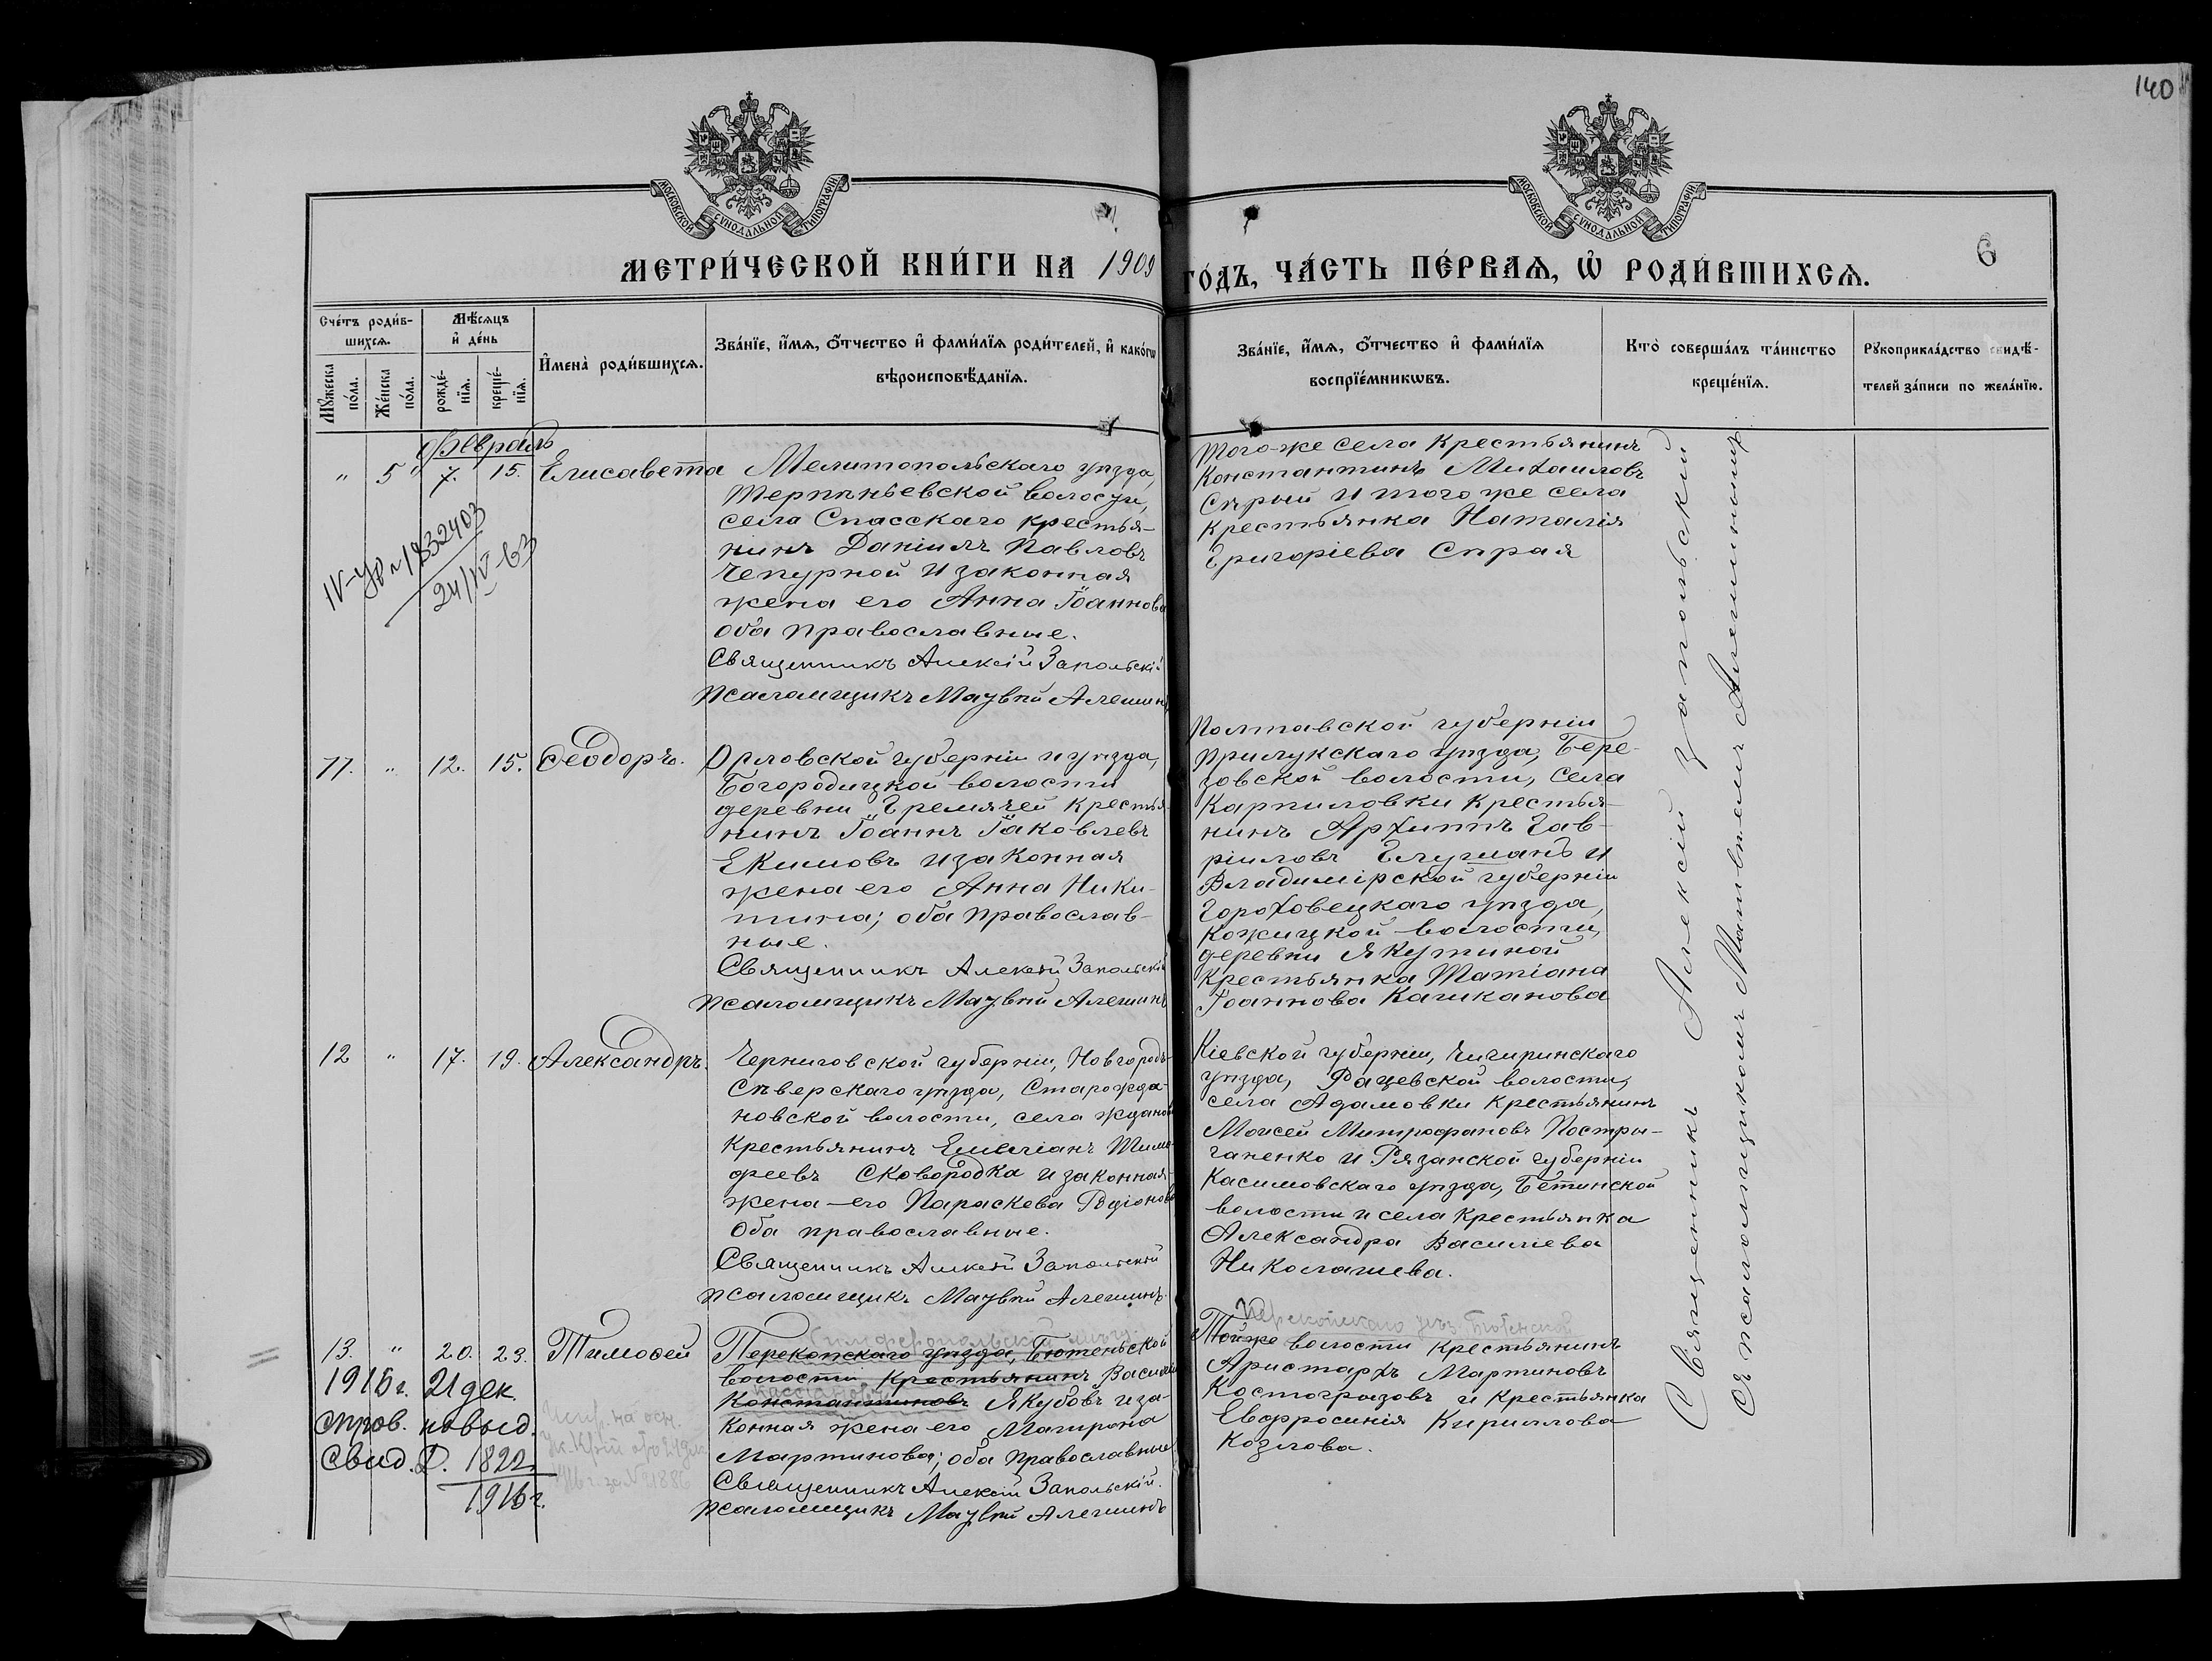 140
МОСКОВСКОЙ СѴНОДАЛЬНОЙ ТИПОГРАФІИ
МОСКОВСКОЙ СѴНОДАЛЬНОЙ ТИПОГРАФІИ
6
МЕТРИ́ЧЕСКОЙ КНИ́ГИ НА 1909 ГО́ДЪ, ЧА́СТЬ ПЕ́РВАѦ, Ѡ҆ РОДИ́ВШИХСѦ.
Сче́тъ роди́в-
шихсѧ.
Мѣ́сѧцъ
и҆ де́нь
Мꙋ́жеска
по́ла.
Же́нска
по́ла.
рожде́-
нїѧ.
креще́-
нїѧ.
И҆мена̀ роди́вшихсѧ.
Зва́нїе, и҆́мѧ, ѻ҆́тчество и҆ фами́лїѧ роди́телей, и҆ како́гѡ
вѣроисповѣ́данїѧ.
Зва́нїе, и҆́мѧ, ѻ҆́тчество и҆ фами́лїѧ
воспрїе́мникѡвъ.
Кто̀ соверша́лъ та́инство
креще́нїѧ.
Рꙋкоприкла́дство свидѣ́-
телей за́писи по жела́нїю.
Февраль
" 5 7. 15. Елисавета
Мелитопольскаго уѣзда,
Терпѣньевской волости,
села Спасскаго крестья-
нинъ Даніилъ Павловъ
Чепурной и законная
жена его Анна Іоаннова
оба православные.
Священникъ Алексій Запольскій
Псаломщикъ Матвѣй Алешинъ
Того-же села крестьянинъ
Константинъ Михаиловъ
Сѣрый и того же села
крестьянка Наталія
Григоріева Сѣрая
IV-УР № 1832403
24/IV-63
11. " 12. 15. Ѳеодоръ.
Орловской губерніи и уѣзда,
Богородицкой волости
деревни Гремячей крестья-
нинъ Іоаннъ Іаковлевъ
Екимовъ и законная
жена его Анна Ники-
тина; оба православ-
ные.
Священникъ Алексѣй Запольскій
Псаломщикъ Матвѣй Алешинъ
Полтавской губерніи
Прилукскаго уѣзда, Бере-
зовской волости, села
Карпиловки крестья-
нинъ Архиппъ Гав-
ріиловъ Глушманъ и
Владимірской губерніи
Гороховецкаго уѣзда,
Кожицкой волости,
деревни Якутиной
крестьянка Татіана
Іоаннова Кашканова
12 " 17. 19. Александръ.
Черниговской губерніи, Новгородъ-
Сѣверскаго уѣзда, Старожда-
новской волости, села Жданов
крестьянинъ Емиліанъ Тимо-
феевъ Сковородка и законная
жена его Параскева Родіонова
Оба православные.
Священникъ Алексѣй Запольскій
Псаломщикъ Матвѣй Алешинъ.
Кіевской губерніи, Чигиринскаго
уѣзда, Рацевской волости,
села Адамовки крестьянинъ
Моисей Митрофановъ Постры-
ганенко и Рязанской губерніи
Касимовскаго уѣзда, Бетинской
волости и села крестьянка
Александра Василіева
Николашева.
13. " 20. 23. Тимоѳей
Симферопольскій мѣщ.
Перекопскаго уѣзда, Бютеньской
волости крестьянинъ Василій
Кассіановъ
Константиновъ Якубовъ и за-
конная жена его Матрона
Мартинова; оба православные
Священникъ Алексій Запольскій.
Псаломщикъ Матвѣй Алешинъ
Перекопскаго уѣз. Бютенской
Той же волости крестьянинъ
Аристархъ Мартиновъ
Костогрызовъ и крестьянка
Евфросинія Кириллова
Козлова.
1916 г. 21 дек.
справ. новыд.
Свид. Д. 1822
1916 г.
Испр. на осн.
Священникъ Алексій Запольскій
съ псаломщикомъ Матвѣемъ Алешинымъ